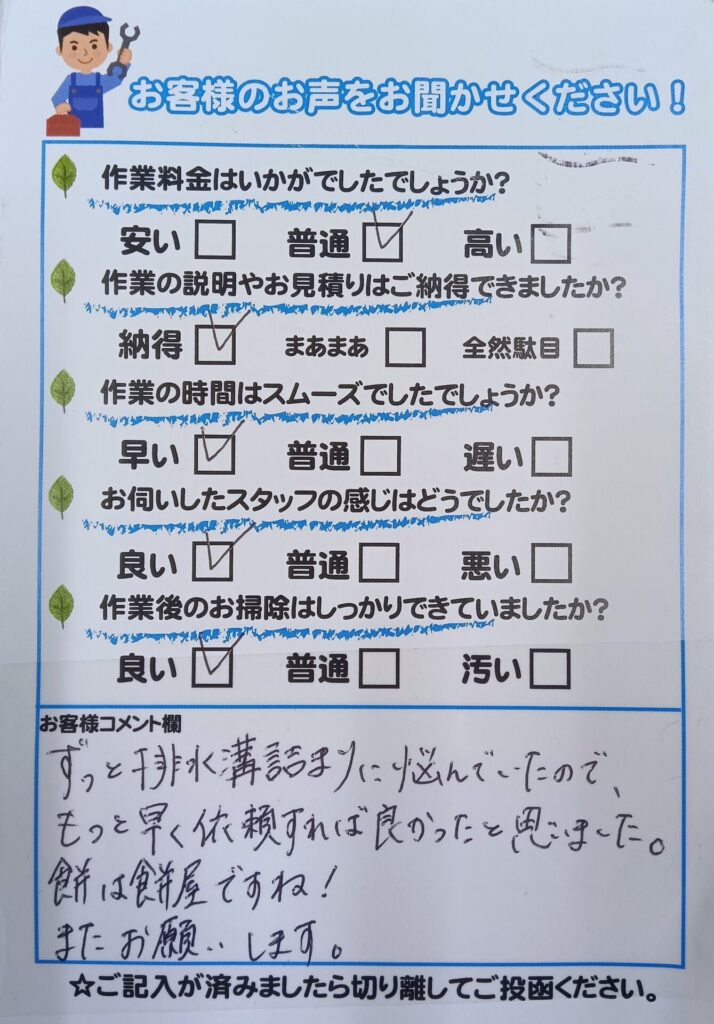 お客様のお声をお聞かせください！
作業料金はいかがでしたでしょうか?
安い □ 普通 ☑ 高い □
作業の説明やお見積りはご納得できましたか?
納得 ☑ まあまあ □ 全然駄目 □
作業の時間はスムーズでしたでしょうか?
早い ☑ 普通 □ 遅い □
お伺いしたスタッフの感じはどうでしたか?
良い ☑ 普通 □ 悪い □
作業後のお掃除はしっかりできていましたか?
良い ☑ 普通 □ 汚い □
お客様コメント欄
ずっと排水溝詰まりに悩んでいたので、
もっと早く依頼すれば良かったと思いました。
餅は餅屋ですね！
またお願いします。
☆ご記入が済みましたら切り離してご投函ください。